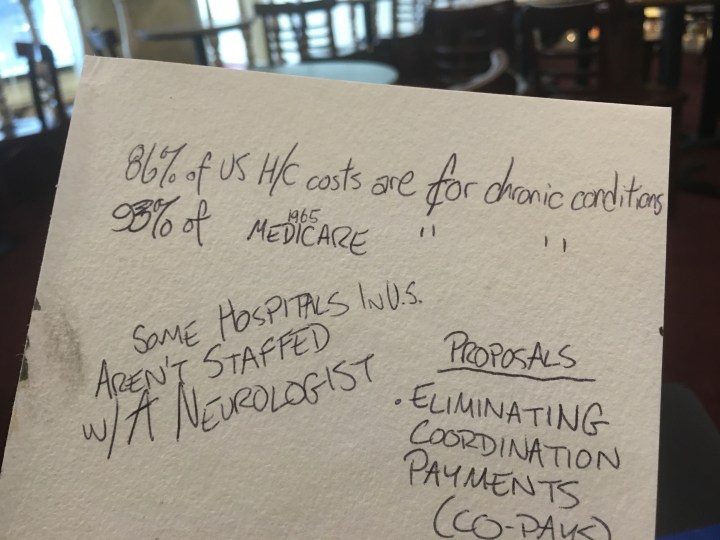 86% of US H/C costs are for chronic conditions
1965
93% of MEDICARE " "
SOME HOSPITALS IN U.S.
AREN'T STAFFED
W/ A NEUROLOGIST
PROPOSALS
• ELIMINATING
COORDINATION
PAYMENTS
(CO-PAYS)